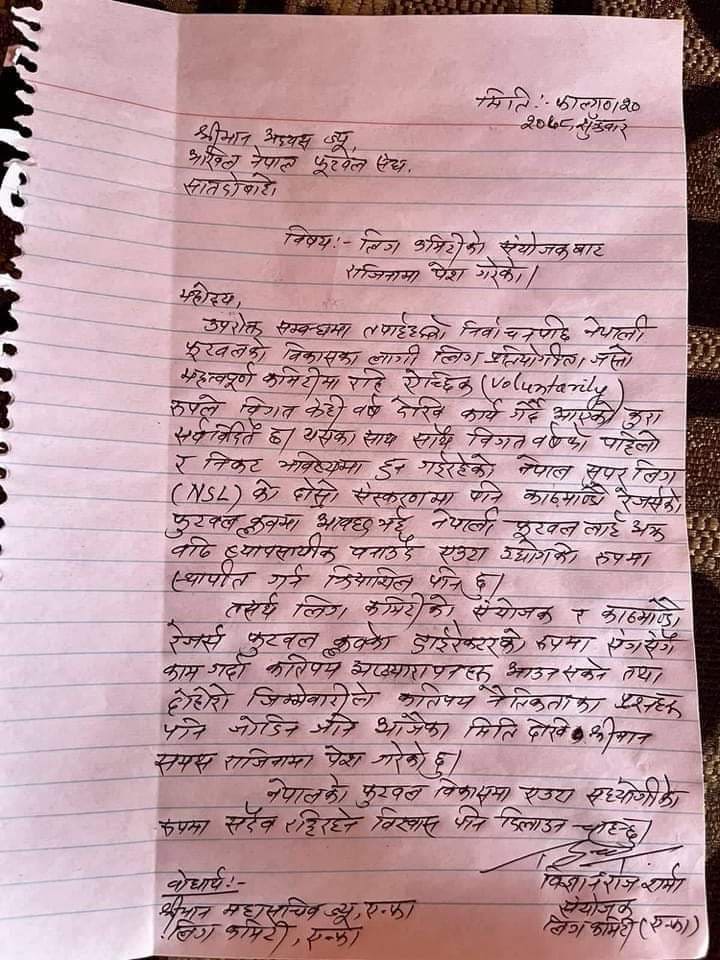 मिति :- फाल्गुण २०
२०७८, शुक्रबार
श्रीमान अध्यक्ष ज्यू,
अखिल नेपाल फूटबल संघ.
सातदोबाटो।
विषय :- लिग कमिटीको संयोजकबाट
राजिनामा पेश गरेको।
महोदय,
उपरोक्त सम्बन्धमा तपाईहरुको निर्वाचनपछि नेपाली
फूटबलको विकासका लागी लिग प्रतियोगीता जस्तो
महत्वपूर्ण कमिटीमा रहि ऐच्छिक (Voluntarily)
रुपले विगत केही वर्ष देखि कार्य गर्दै आएको कुरा
सर्वविदितै छ। यसका साथ साथै विगत वर्षका पहिलो
र निकट भविष्यमा हुन गईरहेको नेपाल सुपर लिग
(NSL) को दोस्रो संस्करणमा पनि काठमाण्डौ रेजर्सको
फुटबल क्लबमा आवद्ध भई नेपाली फूटबल लाई अझ
बढि व्यापसायीक बनाउदै एउटा उद्योगको रुपमा
स्थापीत गर्न क्रियासिल पनि छु।
तसर्थ लिग कमिटीको संयोजक र काठमाण्डौ
रेजर्स फुटबल क्लबको डाईरेक्टरको रुपमा संगसंगै
काम गर्दा कतिपय अप्ठ्यारापनहरु आउन सक्ने तथा
दोहोरो जिम्मेवारीले कतिपय नैतिकताका प्रश्नहरु
पनि जोडिने भएकोले आजैका मिति देखि श्रीमान
समक्ष राजिनामा पेश गरेको छु।
नेपालको फुटबल विकासमा एउटा सहयोगीको
रुपमा सदैव रहिरहने विश्वास पनि दिलाउन चाहन्छु।
बोधार्थ :-
श्रीमान महासचिव ज्यू, एन्फा
लिग कमिटी, एन्फा
विज्ञानराज शर्मा
संयोजक
लिग कमिटी (एन्फा)